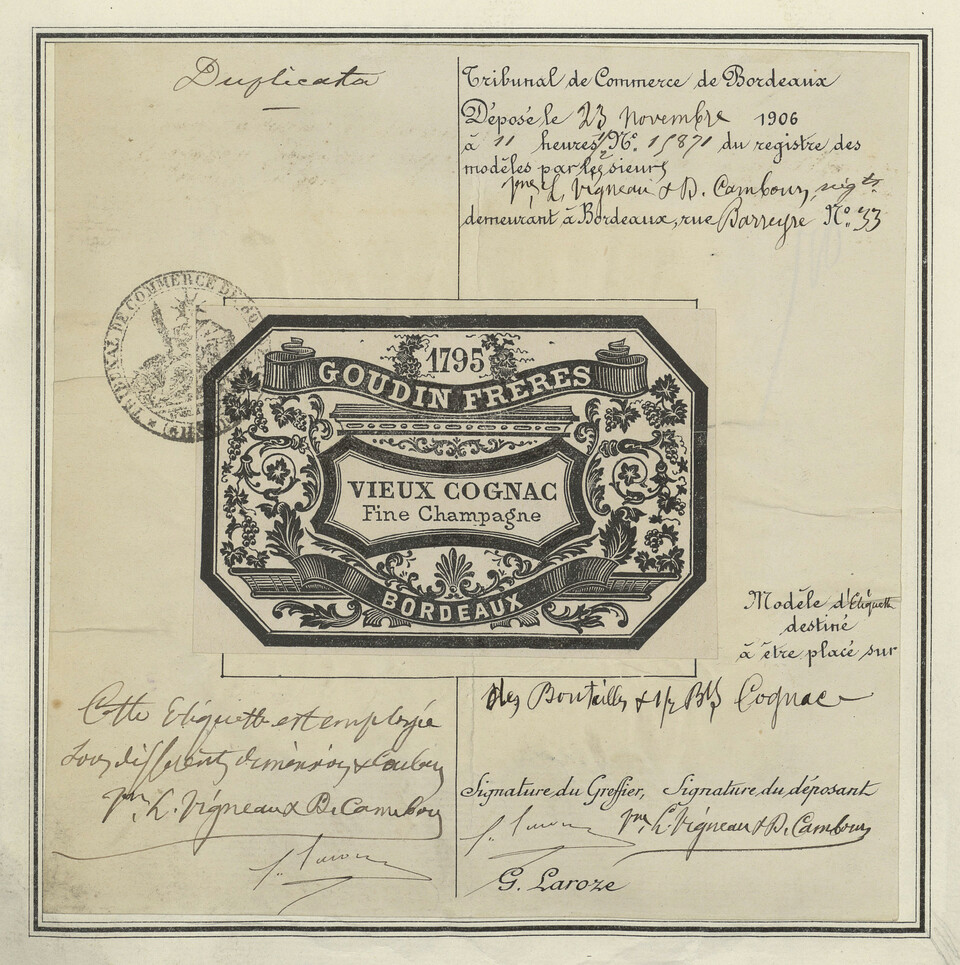 Duplicata
Tribunal de Commerce de Bordeaux
Déposé le 23 Novembre 1906
à 11 heures ½ No. 15871 du registre des
modèles par les sieurs
Vve L. Vigneau & D. Cambour, négts
demeurant à Bordeaux, rue Barreyre No. 33
TRIBUNAL DE COMMERCE DE BO
1795
GOUDIN FRÈRES
VIEUX COGNAC
Fine Champagne
BORDEAUX
Modèle d'Etiquette
destiné
à être placé sur
des Bouteilles & 1/2 Blles Cognac
Cette Etiquette est employée
sous différents dimensions & couleurs
Vve L. Vigneau & D. Cambour
Signature du Greffier, Signature du déposant
Vve L. Vigneau & D. Cambour
G. Laroze